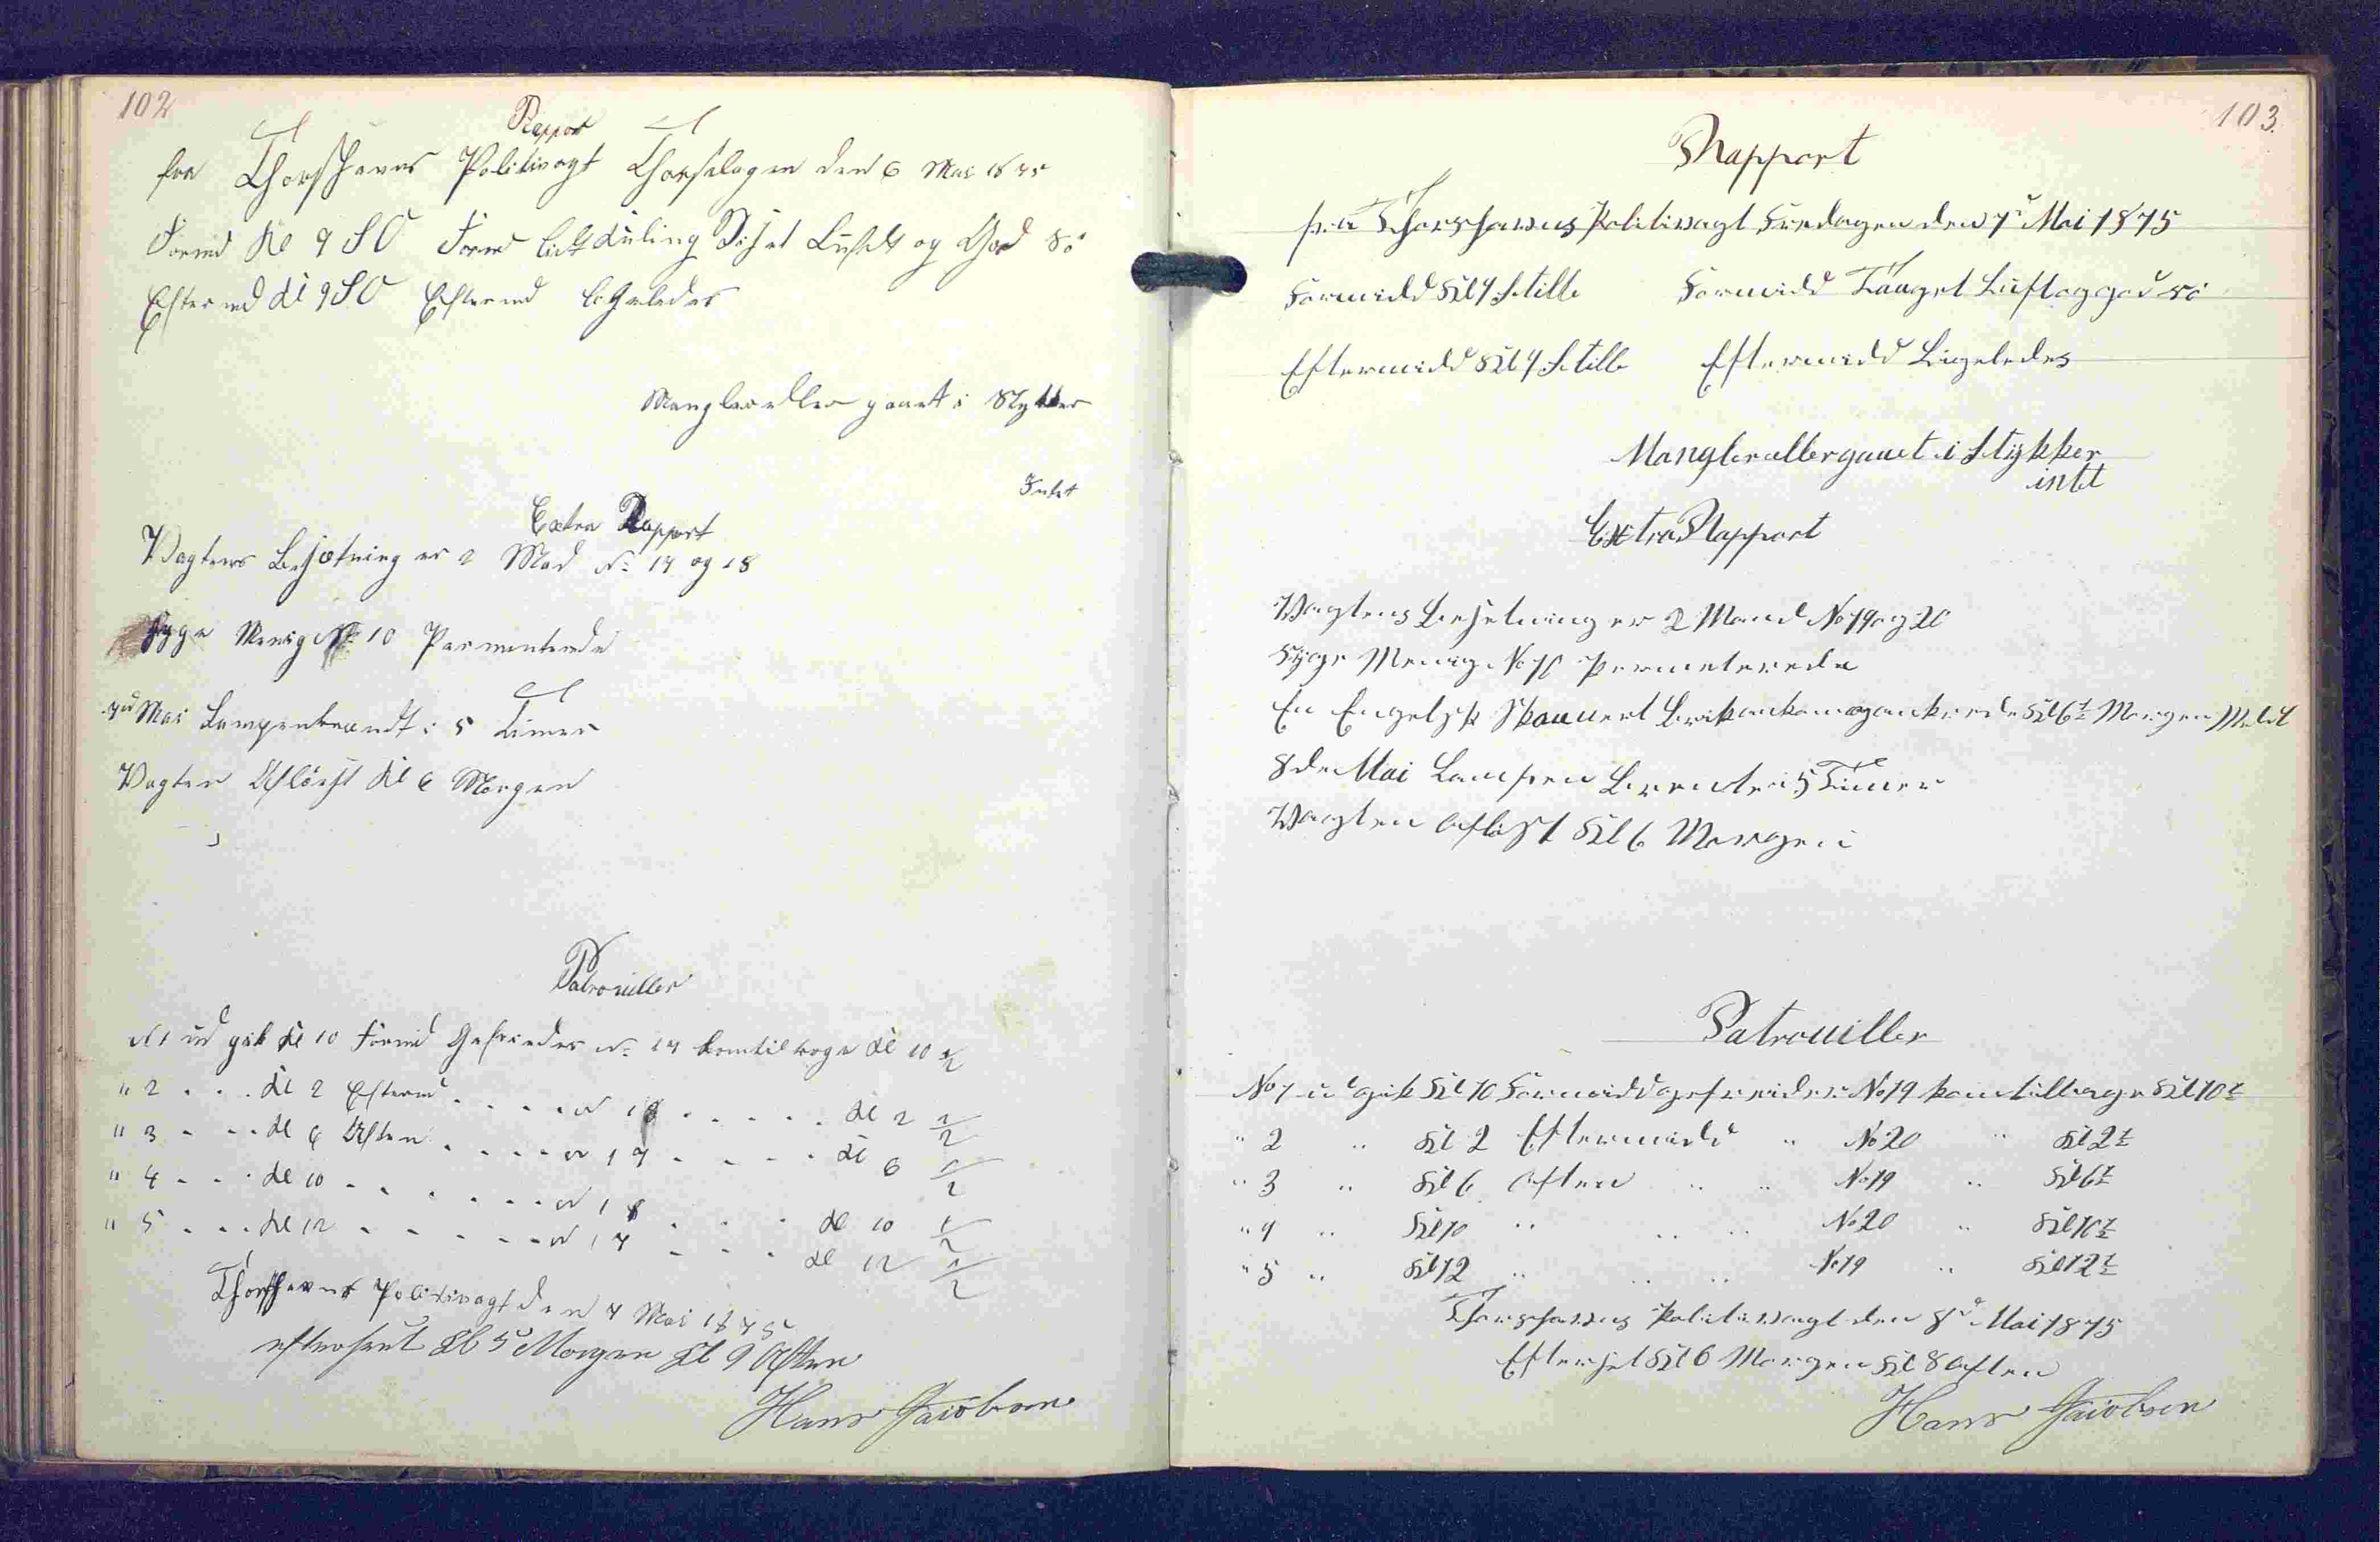 102
Rapport
fra Thorshavns Politivagt Thorsdagen den 6 Mai 1875
Formd Kl 9 SO Form let Kuling Diset Luft og God Sö
Eftermd Kl 9 SO Eftermd ligeledes
Mangler eller gaaet i Stykker
Intet
Extra Rapport
Vagtens Besætning er 2 Mad No 17 og 18
Syge Menig No 10 Parmenterede
7d Mai Lampen brændt i 5 Timer
Vagten Aflöist Kl 6 Morgen
Patrouiller
N 1 ud gik Kl 10 Formd Gefreider No 17 kom tilbage Kl 10 1/2
" 2 . . . Kl 2 Efterm . . . . N 18 . . . . . Kl 2 1/2
" 3 . . . Kl 6 Aften . . . . N 17 . . . . Kl 6 1/2
" 4 . . . Kl 10 . . . . . . . N 18 . . . Kl 10 1/2
" 5 . . . Kl 12 . . . . . . N 17 . . . Kl 12 1/2
Thorshavns Politivagt den 7 Mai 1875
efterseet Kl 5 Morgen Kl 9 Aften
Hans Jacobsen
103.
Rapport
fra Thorshavns Politivagt Fredagen den 7d Mai 1875
Formidd Kl 9 Stille Formidd Taaget Luft og god Sö
Eftermidd Kl 9 Stille Eftermidd Ligeledes
Mangler eller gaaet i Stykker
intet
Extra Rapport
Vagtens Besetning er 2 Mand No 19 og 20
Syge Menig No 10 Permeterede
En Engelsk Skonnert Brik ankom og ankrede Kl 6 1/2 Morgen Meldt
8de Mai Lampen Brendte i 5 Timer
Vagten Aflöst Kl 6 Morgen
Patrouiller
No 1 ud gik Kl 10 Formidd gefreider No 19 kom tilbage Kl 10 1/2
" 2 " Kl 2 Eftermidd " No 20 " Kl 2 1/2
" 3 " Kl 6 Aften " " No 19 " Kl 6 1/2
" 4 " Kl 10 " " " No 20 " Kl 10 1/2
" 5 " Kl 12 " " " No 19 " Kl 12 1/2
Thorshavns Politivagt den 8d Mai 1875
Efterset Kl 6 Morgen Kl 8 Aften
Hans Jacobsen